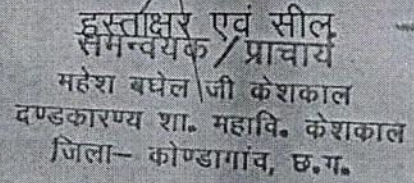 हस्ताक्षर एवं सील
समन्वयक/प्राचार्य
महेश बघेल जी केशकाल
दण्डकारण्य शा. महावि. केशकाल
जिला– कोण्डागांव, छ.ग.